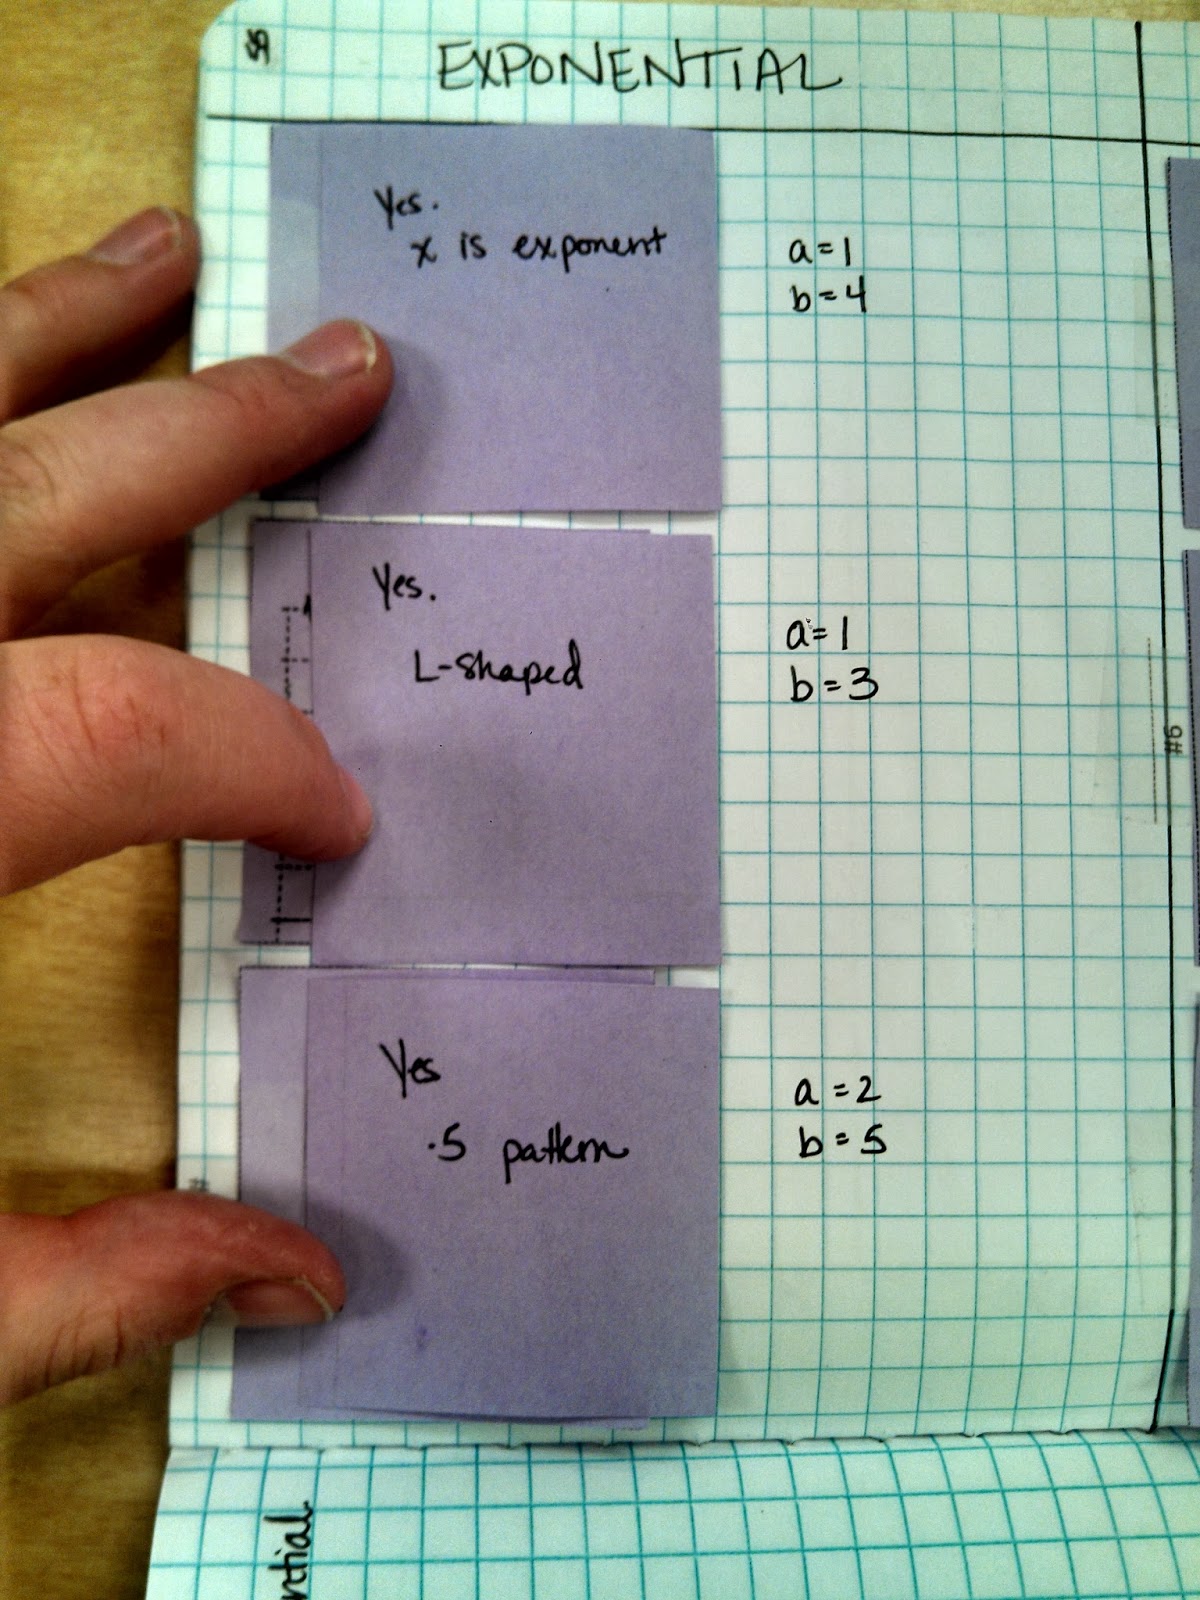 EXPONENTIAL
Yes.
x is exponent
a=1
b=4
Yes.
L-shaped
a=1
b=3
#6
Yes
·5 pattern
a=2
b=5
#
ntial